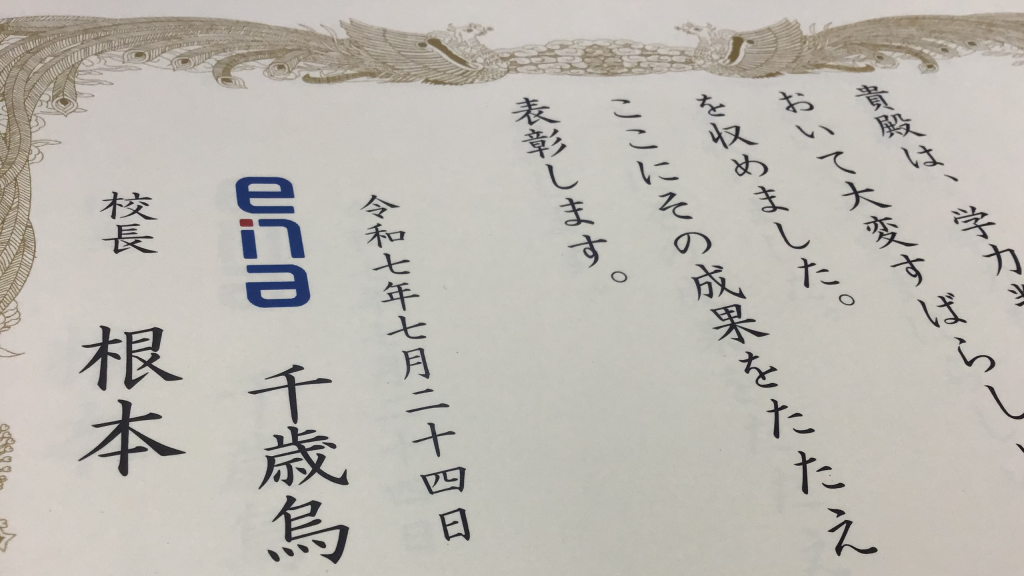 貴殿は、学力
おいて大変すばらし
を収めました。
ここにその成果をたたえ
表彰します。
令和七年七月二十四日
ena 千歳烏
校長 根本